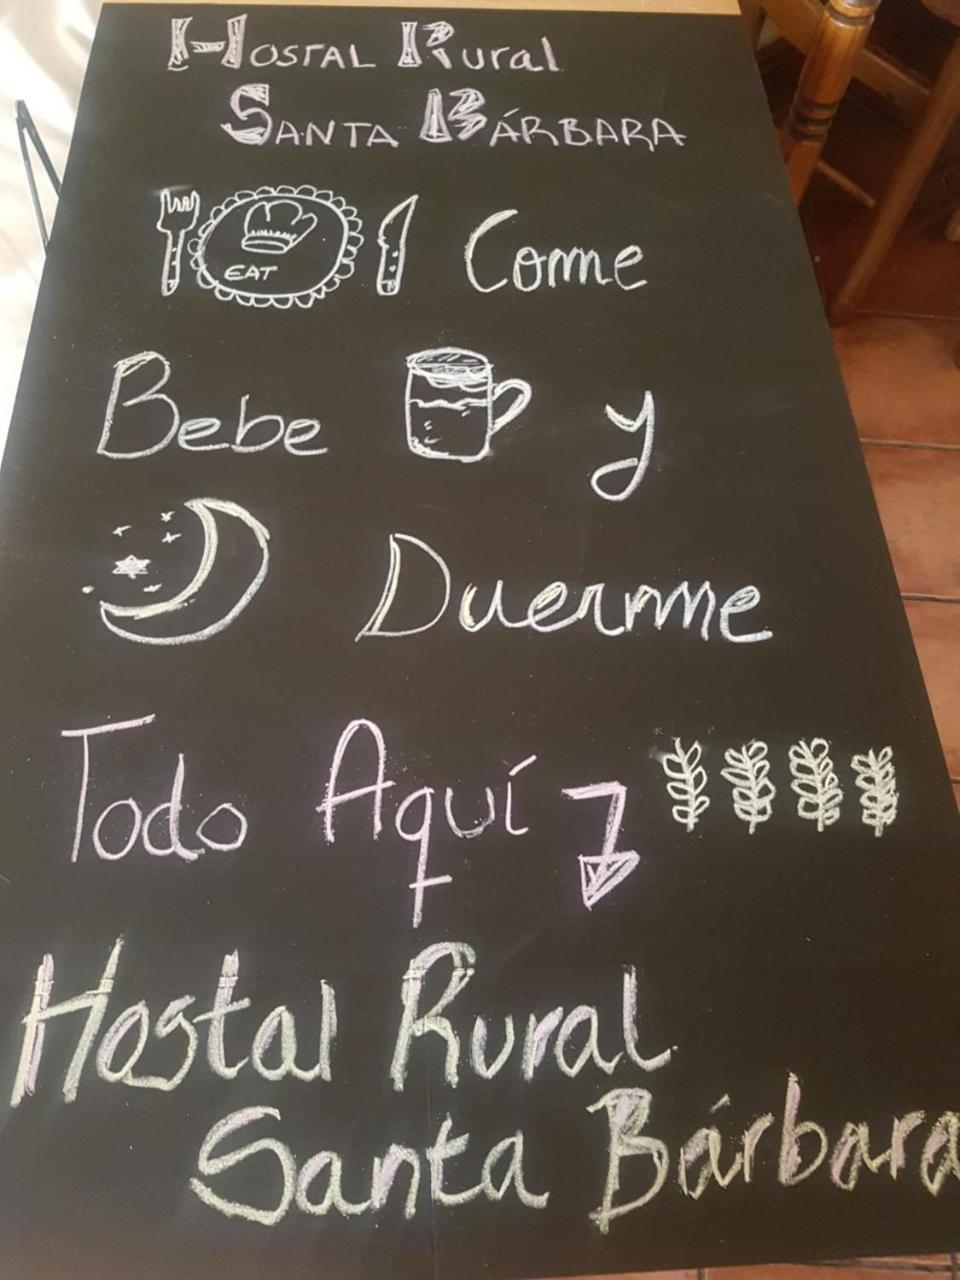 Hostal Rural
Santa Bárbara
EAT Come
Bebe y
Duerme
Todo Aquí
Hostal Rural
Santa Bárbara